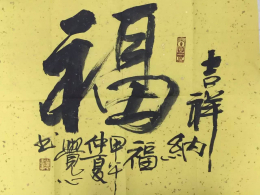 福
吉祥納
福
甲午
仲夏
覺心
书